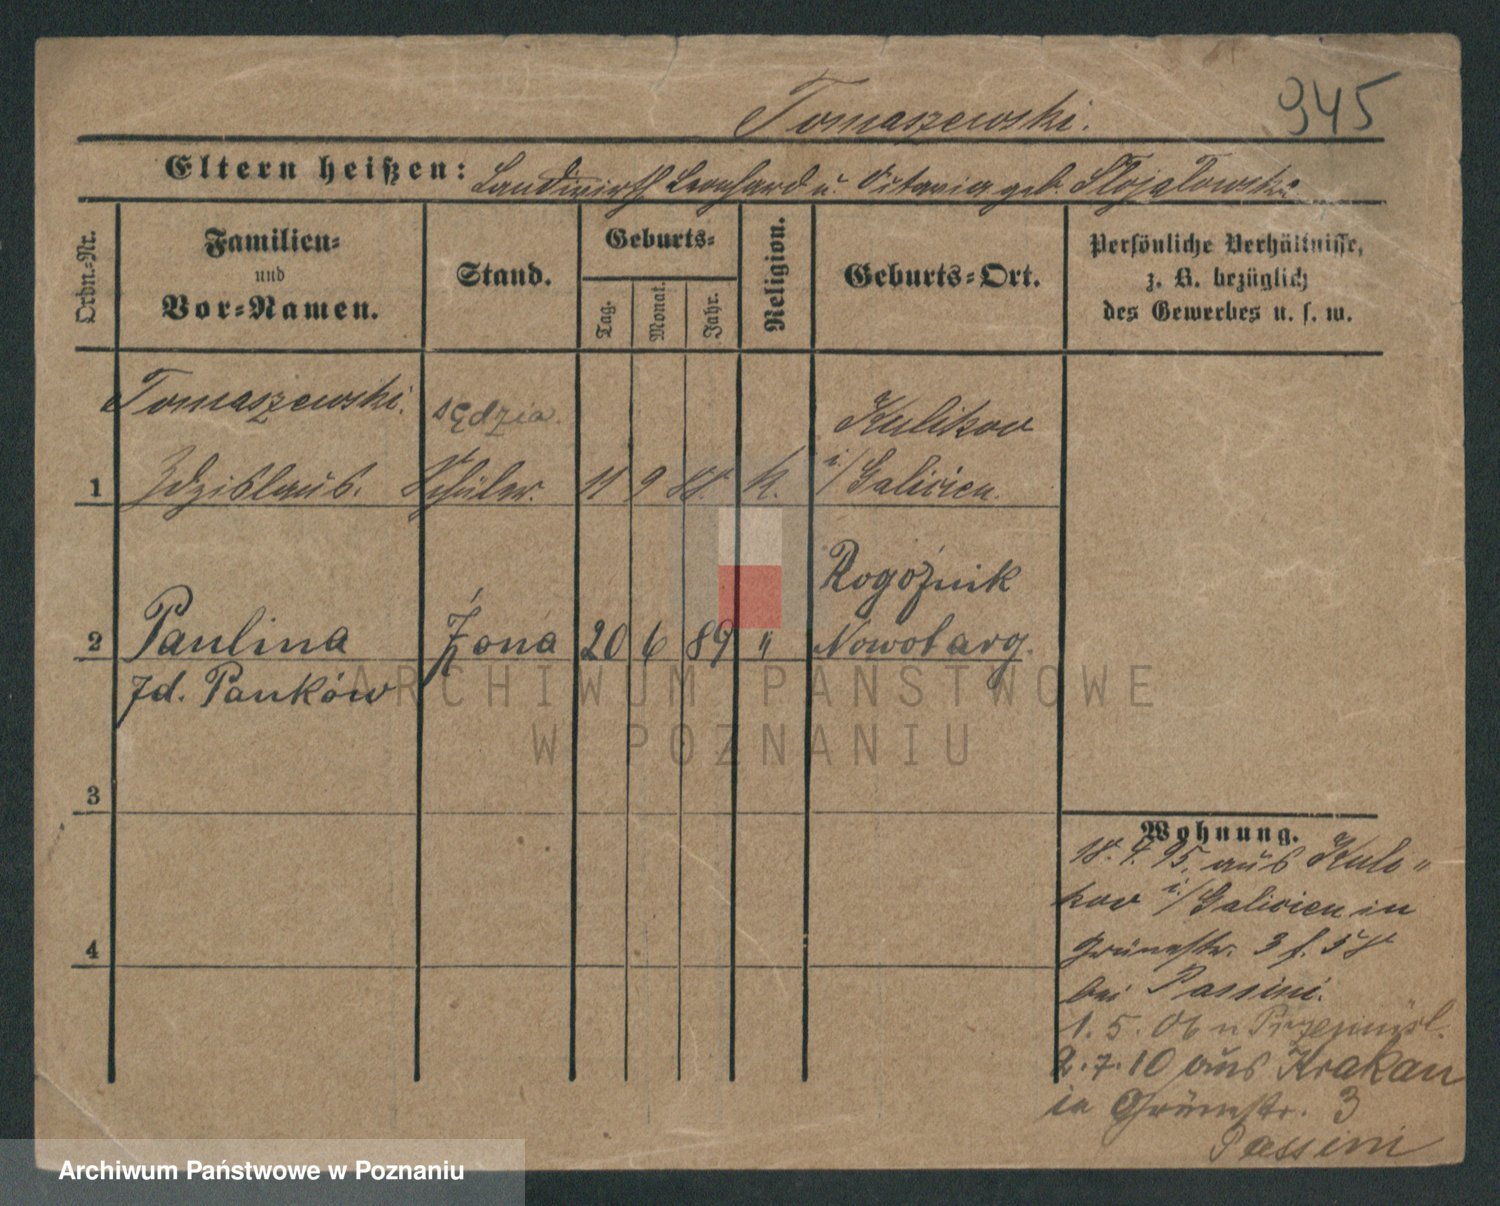 Tomaszewski. 945
Eltern heißen: Landwirth Leonhard u. Octavia geb. Stojalowski
Ordn.-Nr.
Familien-
und
Vor-Namen.
Stand.
Geburts-
Tag.
Monat.
Jahr.
Religion.
Geburts-Ort.
Persönliche Verhältnisse,
z. B. bezüglich
des Gewerbes u. s. w.
Tomaszewski. sędzia. Kulikow
1 Zdzislaus. Schüler. 11 9 88. k. i/Galicien.
Rogoźnik
2 Paulina Żona 20 6 89 " Nowotarg.
zd. Panków
3
4
Wohnung.
18. 4. 95. aus Kuli-
kow i/Galicien in
Grünestr. 3
bei Passini.
1. 5. 06 n Przemysl.
2. 7. 10 aus Krakau
in Grünestr. 3
Passini
ARCHIWUM PAŃSTWOWE
W POZNANIU
Archiwum Państwowe w Poznaniu